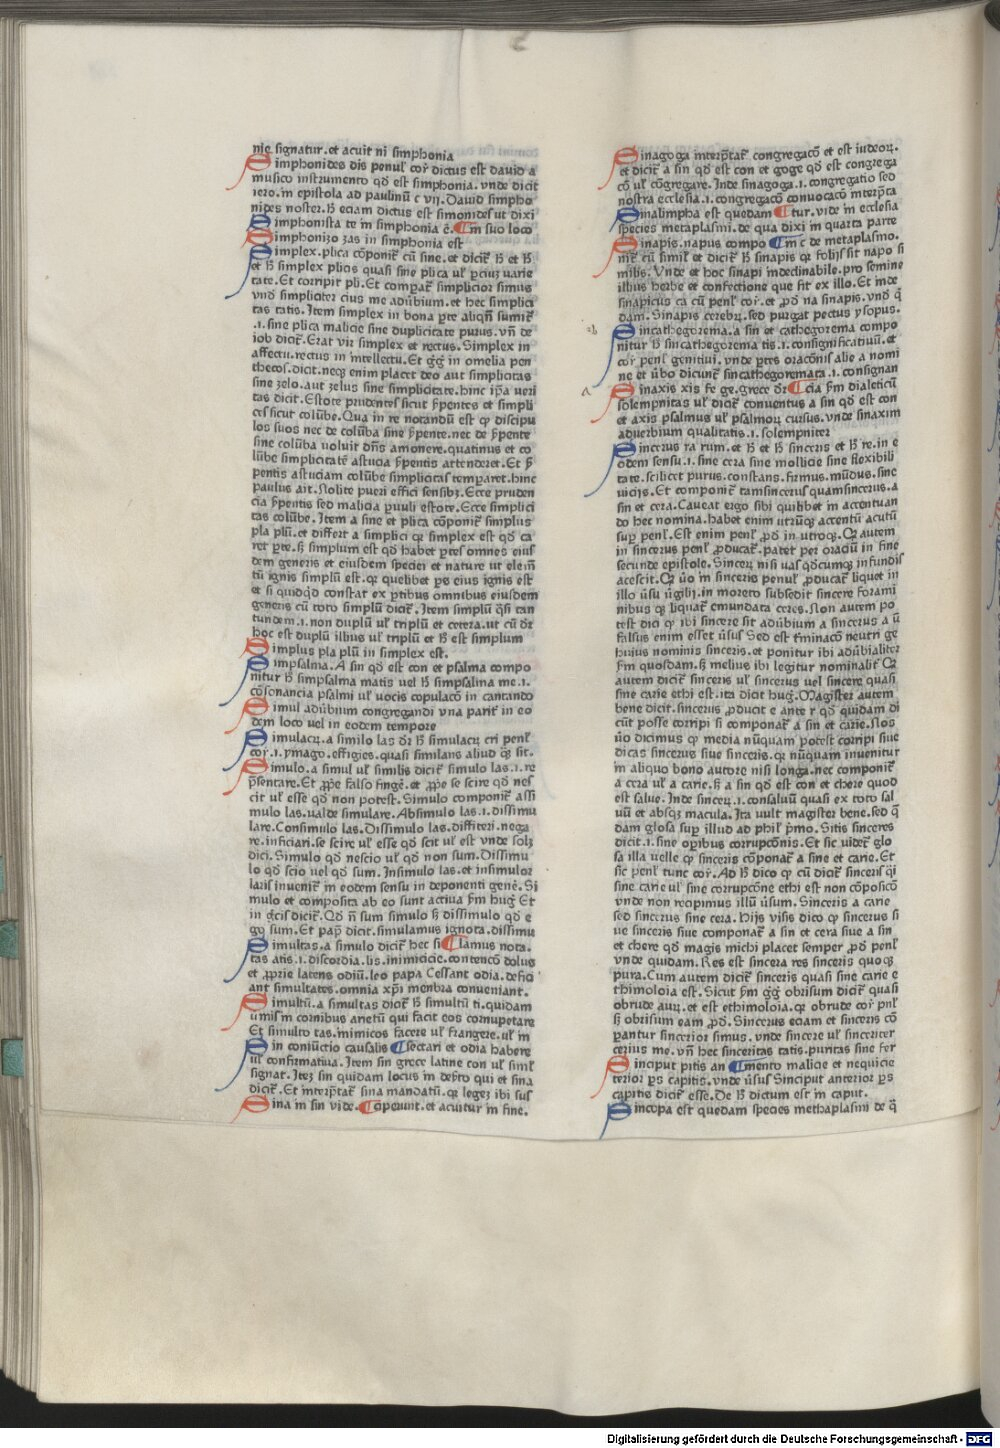 nie signatur. et acuit ni simphonia
Simphonides dis penul̄ cor̄ dictus est dauid a
musico instrumento qd̄ est simphonia. vnde dicit
iero. in epistola ad paulinū c vij. Dauid simpho
nides noster. h̄ eciam dictus est simonides ut dixi
Simphonista te in simphonia ē. ¶ in suo loco
Simphonizo zas in simphonia est
Simplex. plica cōponit̄ cū sine. et dicit̄ h̄ et h̄
et h̄ simplex plicis quasi sine plica ul̄
tate. Et corripit pli. Et comparat̄ simplicior simus
vnd̄ simpliciter cius me adūbium. et hec simplici
tas tatis. Item simplex in bona parte aliqn̄ sumit̄
.i. sine plica malicie sine duplicitate purus. vn̄ de
iob dicit̄. Erat vir simplex et rectus. Simplex in
affectu. rectus in intellectu. Et g̅g̅ in omelia pen
thecos. dicit. neq; enim placet deo aut simplicitas
sine zelo. aut zelus sine simplicitate. hinc ip̄a ueri
tas dicit. Estote prudentes sicut s̄pentes et simpli
ces sicut colūbe. Qua in re notandū est qp discipu
los suos nec de colūba sine s̄pente. nec de s̄pente
sine colūba uoluit dn̄s amonere. quatinus et co
lūbe simplicitatē astucia s̄pentis attenderet. Et s̄
pentis astuciam colūbe simplicitas temparet. hinc
Paulus ait. Nolite pueri effici sensib;. Ecce pruden
cia s̄pentis sed malicia paruuli estote. Ecce simplici
tas colūbe. Item a sine et plica cōponit̄ simplus
pla plū. et differt a simplici q̄ simplex est qd̄ ca
ret parte. s; simplum est qd̄ habet partes omnes eius
dem generis et eiusdem speciei et nature ut elem̄
tū ignis simplū est. q̄ quelibet pars eius ignis est
et si quidqd̄ constat ex partibus omnibus eiusdem
generis cū toto simplū dicit̄. Item simplū q̄si tan
tundem .i. non duplū ul̄ triplū et cetera. ut cū dr̄
hoc est duplū illius ul̄ triplū et h̄ est simplum
Simplus pla plū in simplex est.
Simpsalma. A sin qd̄ est con et psalma compo
nitur h̄ simpsalma matis uel h̄ simpsalina me .i.
cōsonancia psalmi ul̄ uocis copulacō in cantando
Simul adūbium congregandi vna parit̄ in eo
dem loco vel in eodem tempore
Simulacꝝ. a similo las dr̄ h̄ simulacꝝ cri penl̄
cor̄ .i. ymago. effigies. quasi similans aliud q̄; sit.
Simulo. a simul ul̄ similis dicit̄ simulo las .i. re
p̄sentare. Et p̱pe falso fingē. et p̱pe se scire qd̄ nes
cit ul̄ esse qd̄ non potest. Simulo componit̄ assi
mulo las. ualde simulare. Absimulo las .i. dissimu
lare. Consimulo las. Dissimulo las. diffiteri. nega
re. inficiari. se scire ul̄ esse qd̄ scit ul̄ est vnde solz
dici. Simulo qd̄ nescio ul̄ qd̄ non sum. Dissimu
lo qd̄ scio uel qd̄ sum. Insimulo las. et insimulor
laris inuenit̄ in eodem sensu in deponenti genē. Si
mulo et composita ab eo sunt actiua s̄m hug̅. Et
in grecis dicit̄. Qd̄ n̄ sum simulo s; dissimulo qd̄ e
go sum. Et pap̄ dicit. simulamus ignota. dissimu
Simultas. a simulo dicit̄ hec si ¶ lamus nota.
tas atis .i. discordia. lis. inimicicie. contencō dolus
et p̱prie latens odiū. leo papa Cessant odia. defici
ant simultates. omnia xp̄i menbra conueniant.
Simultū. a simultas dicit̄ h̄ simultū ti. quidam
umis in cornibus arietū qui facit eos cornupetare
Et simulto tas. inimicos facere ul̄ frangere. ul̄ in
Sin coniūctio causalis ¶ sectari et odia habere
ul̄ confirmatiua. Item sin grece latine con ul̄ simul
signat. Itez sin quidam locus in deserto qui et sina
dicit̄. Et interp̄tat̄ sina mandatū. q̄ legez ibi sus
Sina in sin vide. ¶ ceperunt. et acuitur in fine.
Sinagoga interp̄tat̄ congregacō et est iudeoꝝ.
et dicit̄ a sin qd̄ est con et goge qd̄ est congrega
cō ul̄ cōgregare. Inde sinagoga .i. congregatio sed
nostra ecclesia .i. congregacō conuocacō interp̄ta
Sinalimpha est quedam ¶ tur. vide in ecclesia
species metaplasmi. de qua dixi in quarta parte
Sinapis. napus compo ¶ in c de metaplasmo.
nit̄ cū simil̄ et dicit̄ h̄ sinapis q̄ folijs sit napo si
milis. Vnde et hoc sinapi indeclinabile. pro semine
illius herbe et confectione que fit ex illo. Et inde
sinapicus ca cū penl̄ cor̄. et p̱d na sinapis. vnd̄ q̄
dam. Sinapis cerebꝝ. sed purgat pectus ysopus.
Sincathegorema. a sin et cathegorema compo
nitur h̄ sincathegorema tis .i. consignificatiuū. et
cor̄ penl̄ genitiui. vnde partes oraconis alie a nomi
ne et ūbo dicunt̄ sincathegoremata .i. consignan
Sinaxis xis fe ge. grece dr̄ ¶ cia s̄m dialeticū
solempnitas ul̄ dicit̄ conuentus a sin qd̄ est con
et axis psalmus ul̄ psalmoꝝ cursus. vnde sinaxim
aduerbium qualitatis .i. solempniter
Sincerus ra rum. et h̄ et h̄ sinceris et h̄ re. in e
odem sensu .i. sine cera sine mollicie sine flexibili
tate. scilicet purus. constans. firmus. mūdus. sine
vicijs. Et componit̄ tamsincerus quamsincerus. a
sin et cera. Caueat ergo sibi quilibet in accentuan
do hec nomina. habet enim utrūq; accentū acutū
sup̱ penl̄. Est enim penl̄ p̱d in utroq;. Q̄ autem
in sincerus penl̄ p̱ducat̄. patet per oraciū in fine
secunde epistole. Sinceꝝ nisi uas qd̄cumq; infundis
acescit. Q̄ ūo in sinceris penul̄ p̱ducat̄ liquet in
illo ūsu ūgilij. in moreto subsedit sincere forami
nibus q; liquat̄ emundata ceres. Non autem po
test dici qp ibi sincere sit adūbium a sincerus a ū
falsus enim esset ūsus Sed est t̄minacō neutri ge
huius nominis sinceris. et ponitur ibi adūbialiter
s̄m quosdam. s; melius ibi legitur nominalit̄ Q̄
autem dicit̄ sinceris ul̄ sincerus uel sincere quasi
sine carie ethi est. ita dicit hug̅. Magister autem
bene dicit. sincerus p̱ducit e ante r qd̄ quidam di
cūt posse corripi si componat̄ a sin et carie. Nos
ūo dicimus qp media nūquam potest corripi siue
dicas sincerus siue sinceris. q̄ nūquam inuenitur
in aliquo bono autore nisi longa. nec componit̄
a cera ul̄ a carie. s; a sin qd̄ est con et chere quod
est salue. Inde sinceꝝ .i. consaluū quasi ex toto sal
uū et absq; macula. Ita uult magister bene. sed q̄
dam glosa sup̱ illud ad phil̄ p̄mo. Sitis sinceres
dicit .i. sine operibus corrupcōnis. Et sic uidet̄ glo
sa illa uelle qp sinceris cōponat̄ a sine et carie. Et
sic penl̄ tunc cor̄. Ad h̄ dico qp cū dicit̄ sinceris q̄si
sine carie ul̄ sine corrupcōne ethi est non cōposicō
vnde non recipimus illū ūsum. Sinceris a carie
sed sincerus sine cera. Hijs visis dico qp sincerus si
ue sinceris siue componat̄ a sin et cera siue a sin
et chere qd̄ magis michi placet semper p̱d penl̄
vnde quidam. Res est sincera res sinceris quoq;
pura. Cum autem dicit̄ sinceris quasi sine carie e
thimoloia est. Sicut s̄m g̅g̅ obrisum dicit̄ quasi
obrude auꝝ. et est ethimoloia. q̄ obrude cor̄ pnl̄
s; obrisum eam p̱d. Sincerus eciam et sinceris cō
parantur sincerior simus. vnde sincere ul̄ sinceriter
cerius me. vn̄ hec sinceritas tatis. puritas sine fer
Sinciput pitis an ¶ mento malicie et nequicie
terior pars capitis. vnde ūsus Sinciput anterior pars
capitis dicit̄ esse. De h̄ dictum est in caput.
Sincopa est quedam species methaplasmi de q̄
b
a
Digitalisierung gefördert durch die Deutsche Forschungsgemeinschaft - DFG